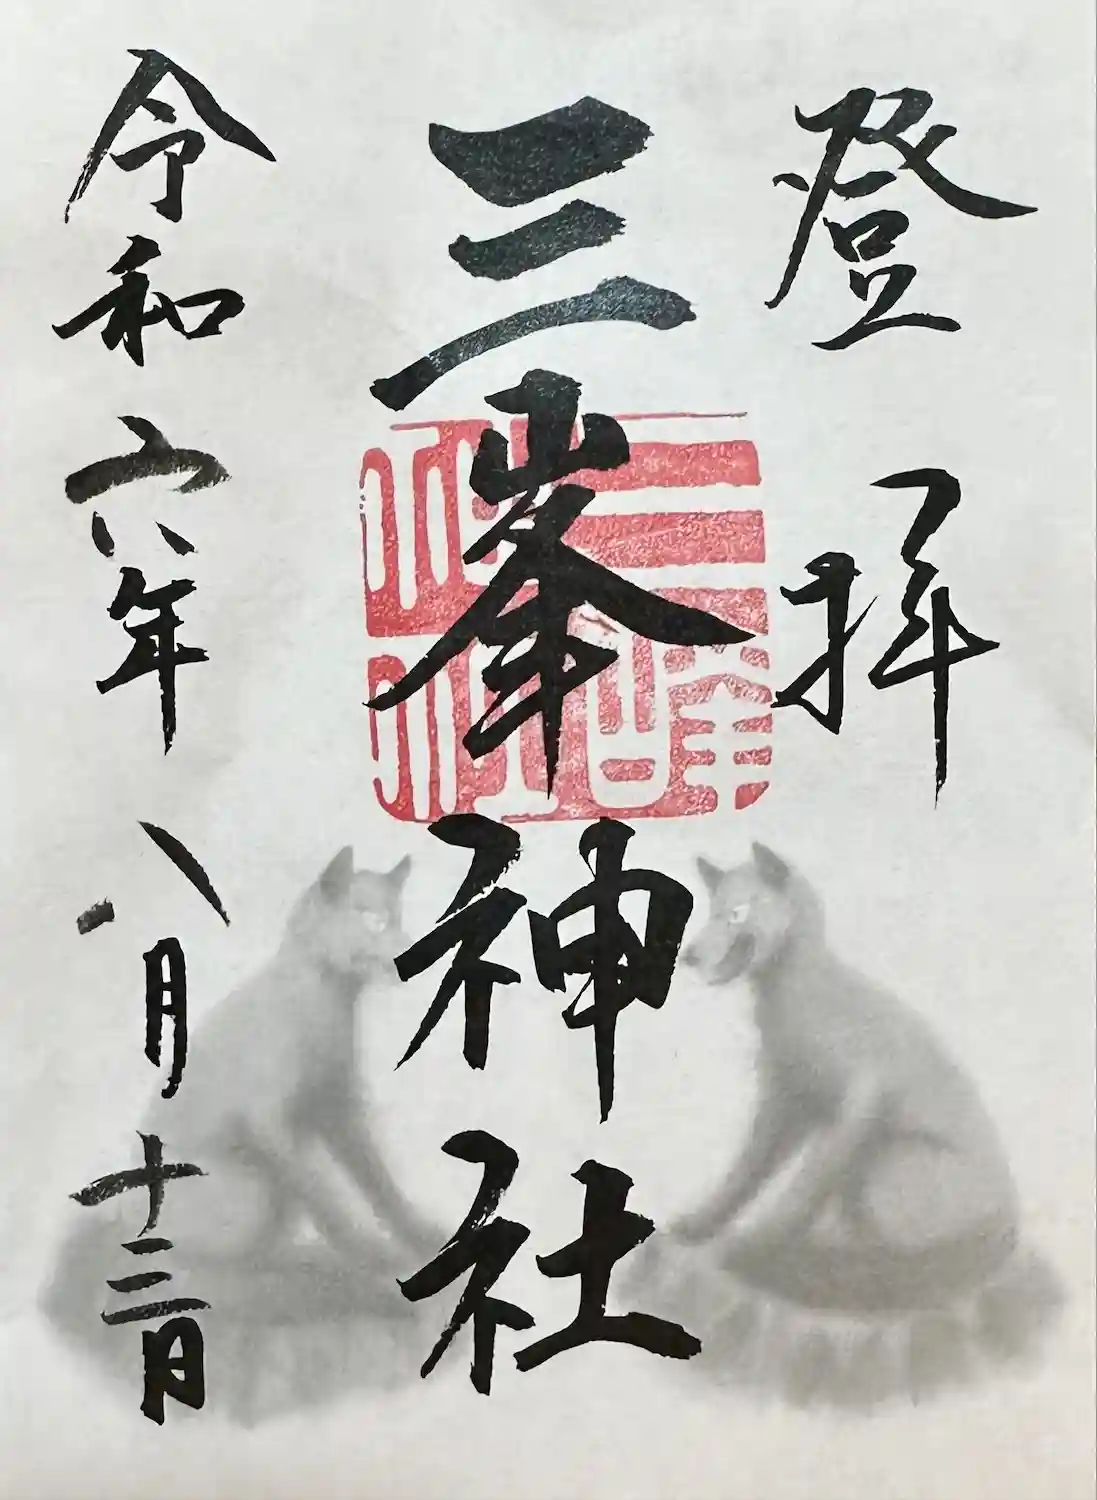 登拝
三峯神社
令和六年八月十三日
三峰神社